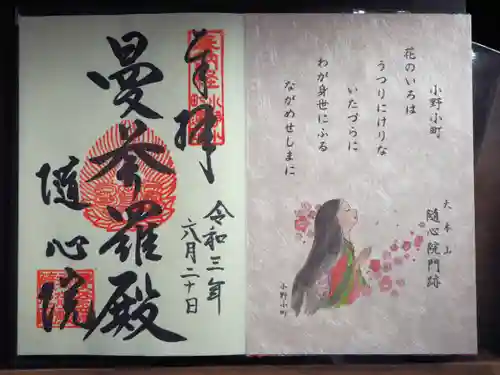 小野小町
花のいろは
うつりにけりな
いたづらに
わが身世にふる
ながめせしまに
大本山
随心院門跡
小野小町
奉拝
曼荼羅殿
随心院
令和三年
六月二十日